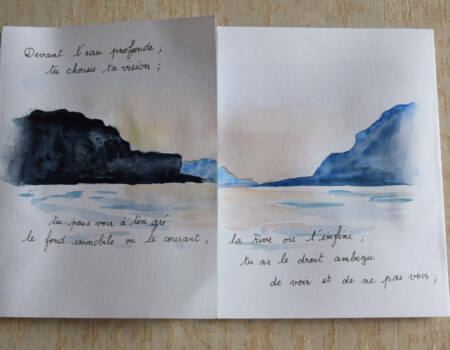 Devant l'eau profonde,
tu choisis ta vision ;
tu peux voir à ton gré
le fond immobile ou le courant,
la rive ou l'infini,
tu as le droit ambigu
de voir et de ne pas voir ;